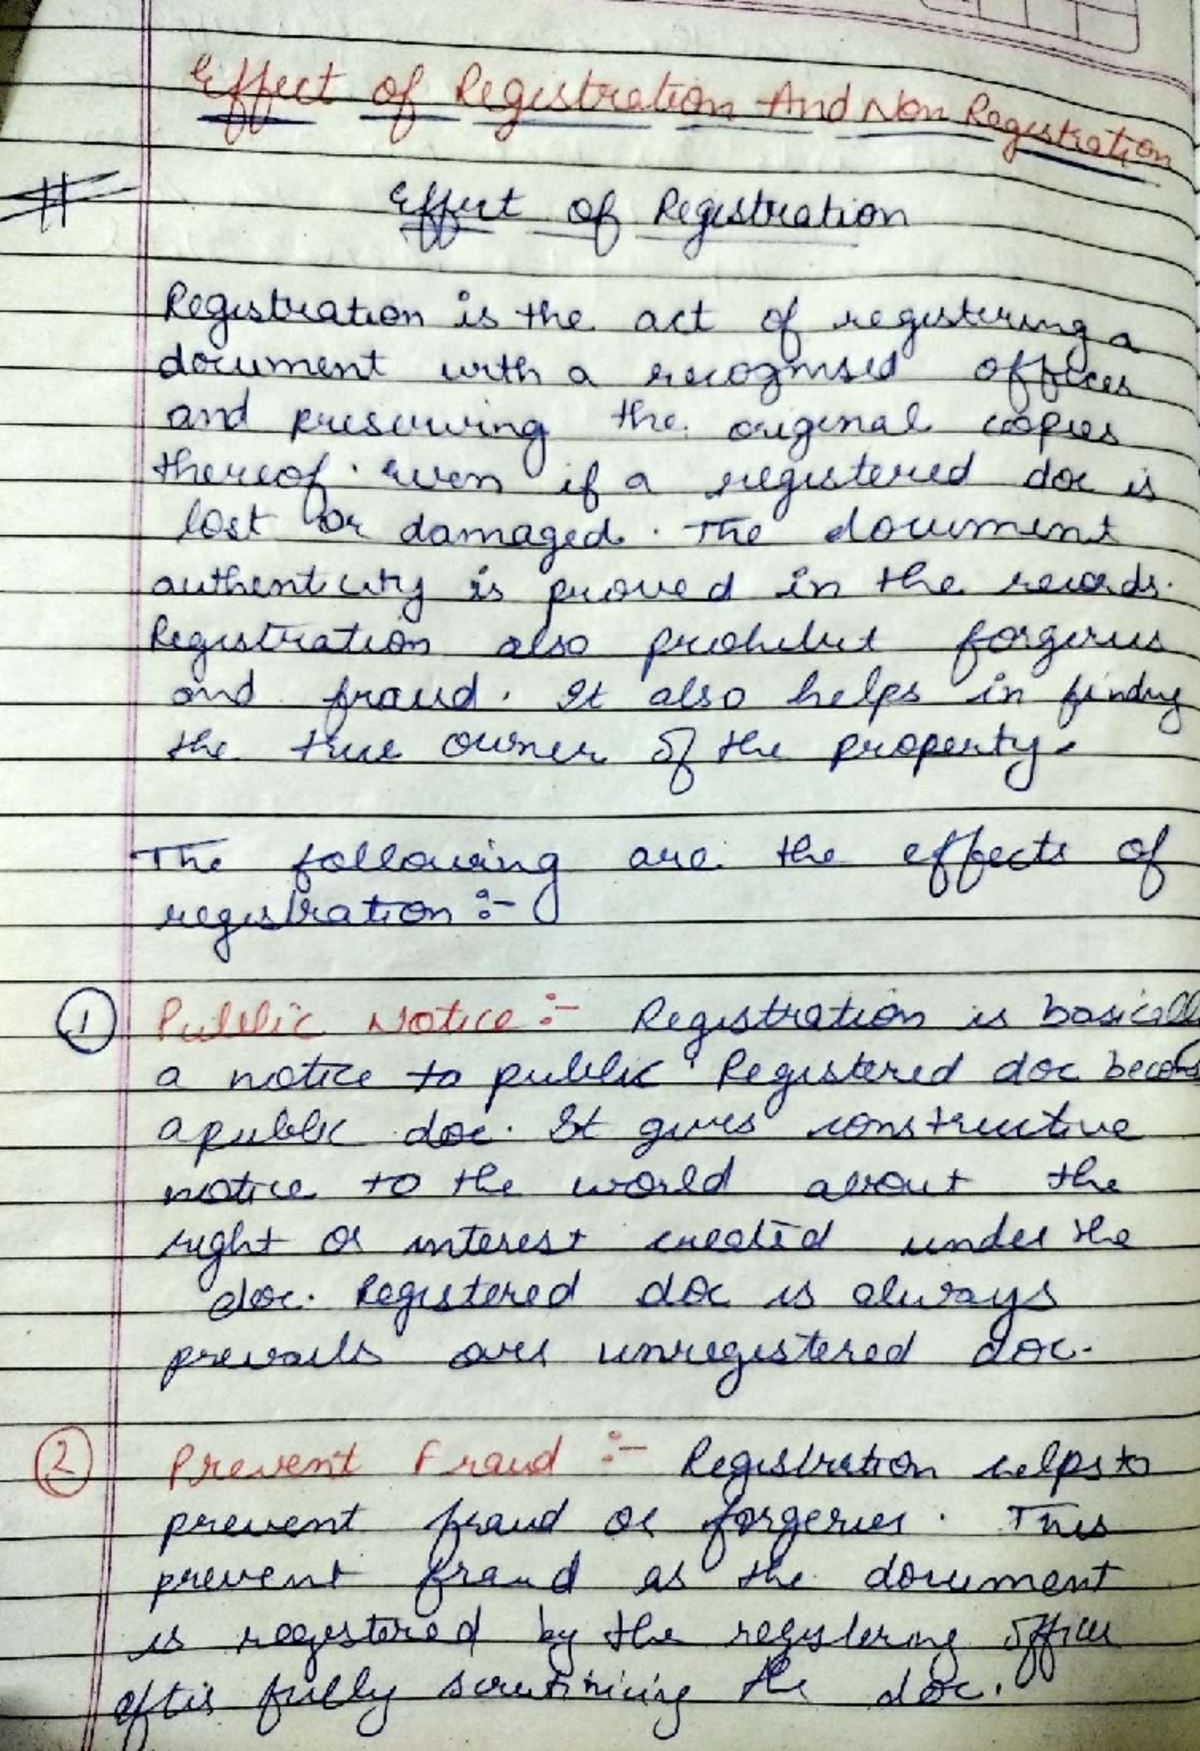 Effect of Registration And Non Registration
# Effect of Registration
Registration is the act of registering a
document with a recognised officer
and preserving the original copies
thereof. Even if a registered doc is
lost or damaged. The document
authenticity is proved in the records.
Registration also prohibit forgeries
and fraud. It also helps in finding
the true owner of the property.
The following are the effects of
registration :-
① Public Notice :- Registration is basically
a notice to public. Registered doc become
a public doc. It gives constructive
notice to the world about the
right or interest created under the
doc. Registered doc is always
prevails over unregistered doc.
② Prevent Fraud :- Registration helps to
prevent fraud or forgeries. This
prevent fraud as the document
is registered by the registering officer
after fully scrutinizing the doc.